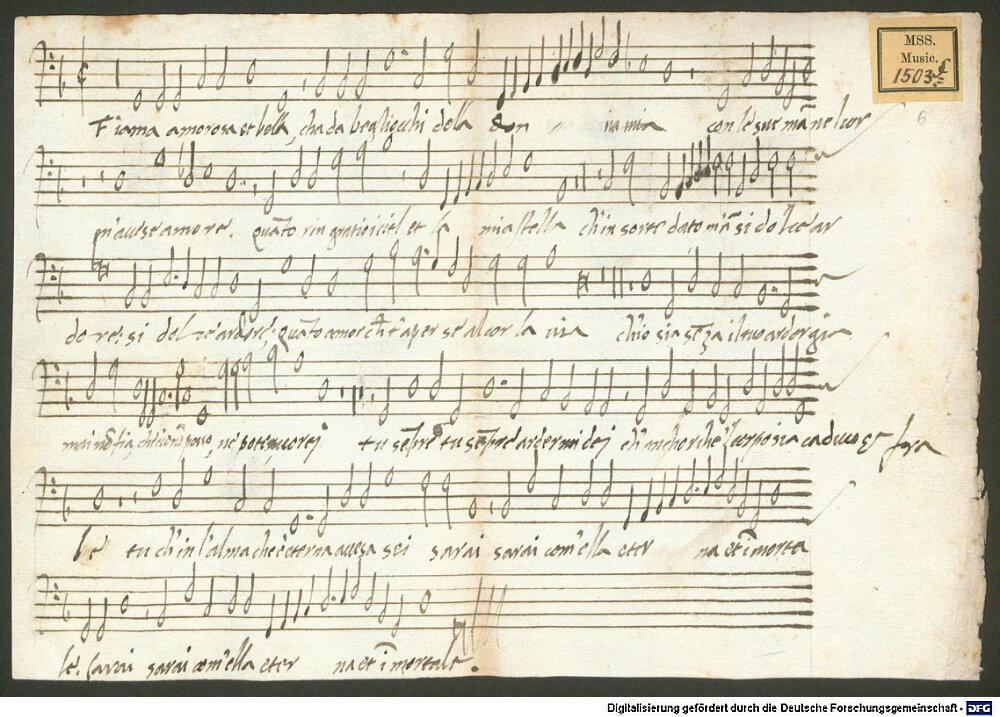 MSS.
Music.
1503f
6
Fiama amorosa et bella cha da begliocchi dela don na mia con le sue mãne l cor
m'accese amore. quãto ringratio i ciel et la mia stella ch'in sorte dato m'ã si dolce ar
dore: si dol ce ardore; quãto amor per se al cor la via ch'io sia sẽza il tuo ardor gia
mai nõ fia, che nõ posso, ne potess vorej. tu sẽpre tu sẽpre arder mi dej ch'anchor che'l corpo sia caduco et fra
le tu ch'in l'alma che è eterna accesa sei sarai sarai com'ella eter na et ĩmorta
le. sarai sarai com'ella eter na et ĩmortale.
Digitalisierung gefördert durch die Deutsche Forschungsgemeinschaft - DFG